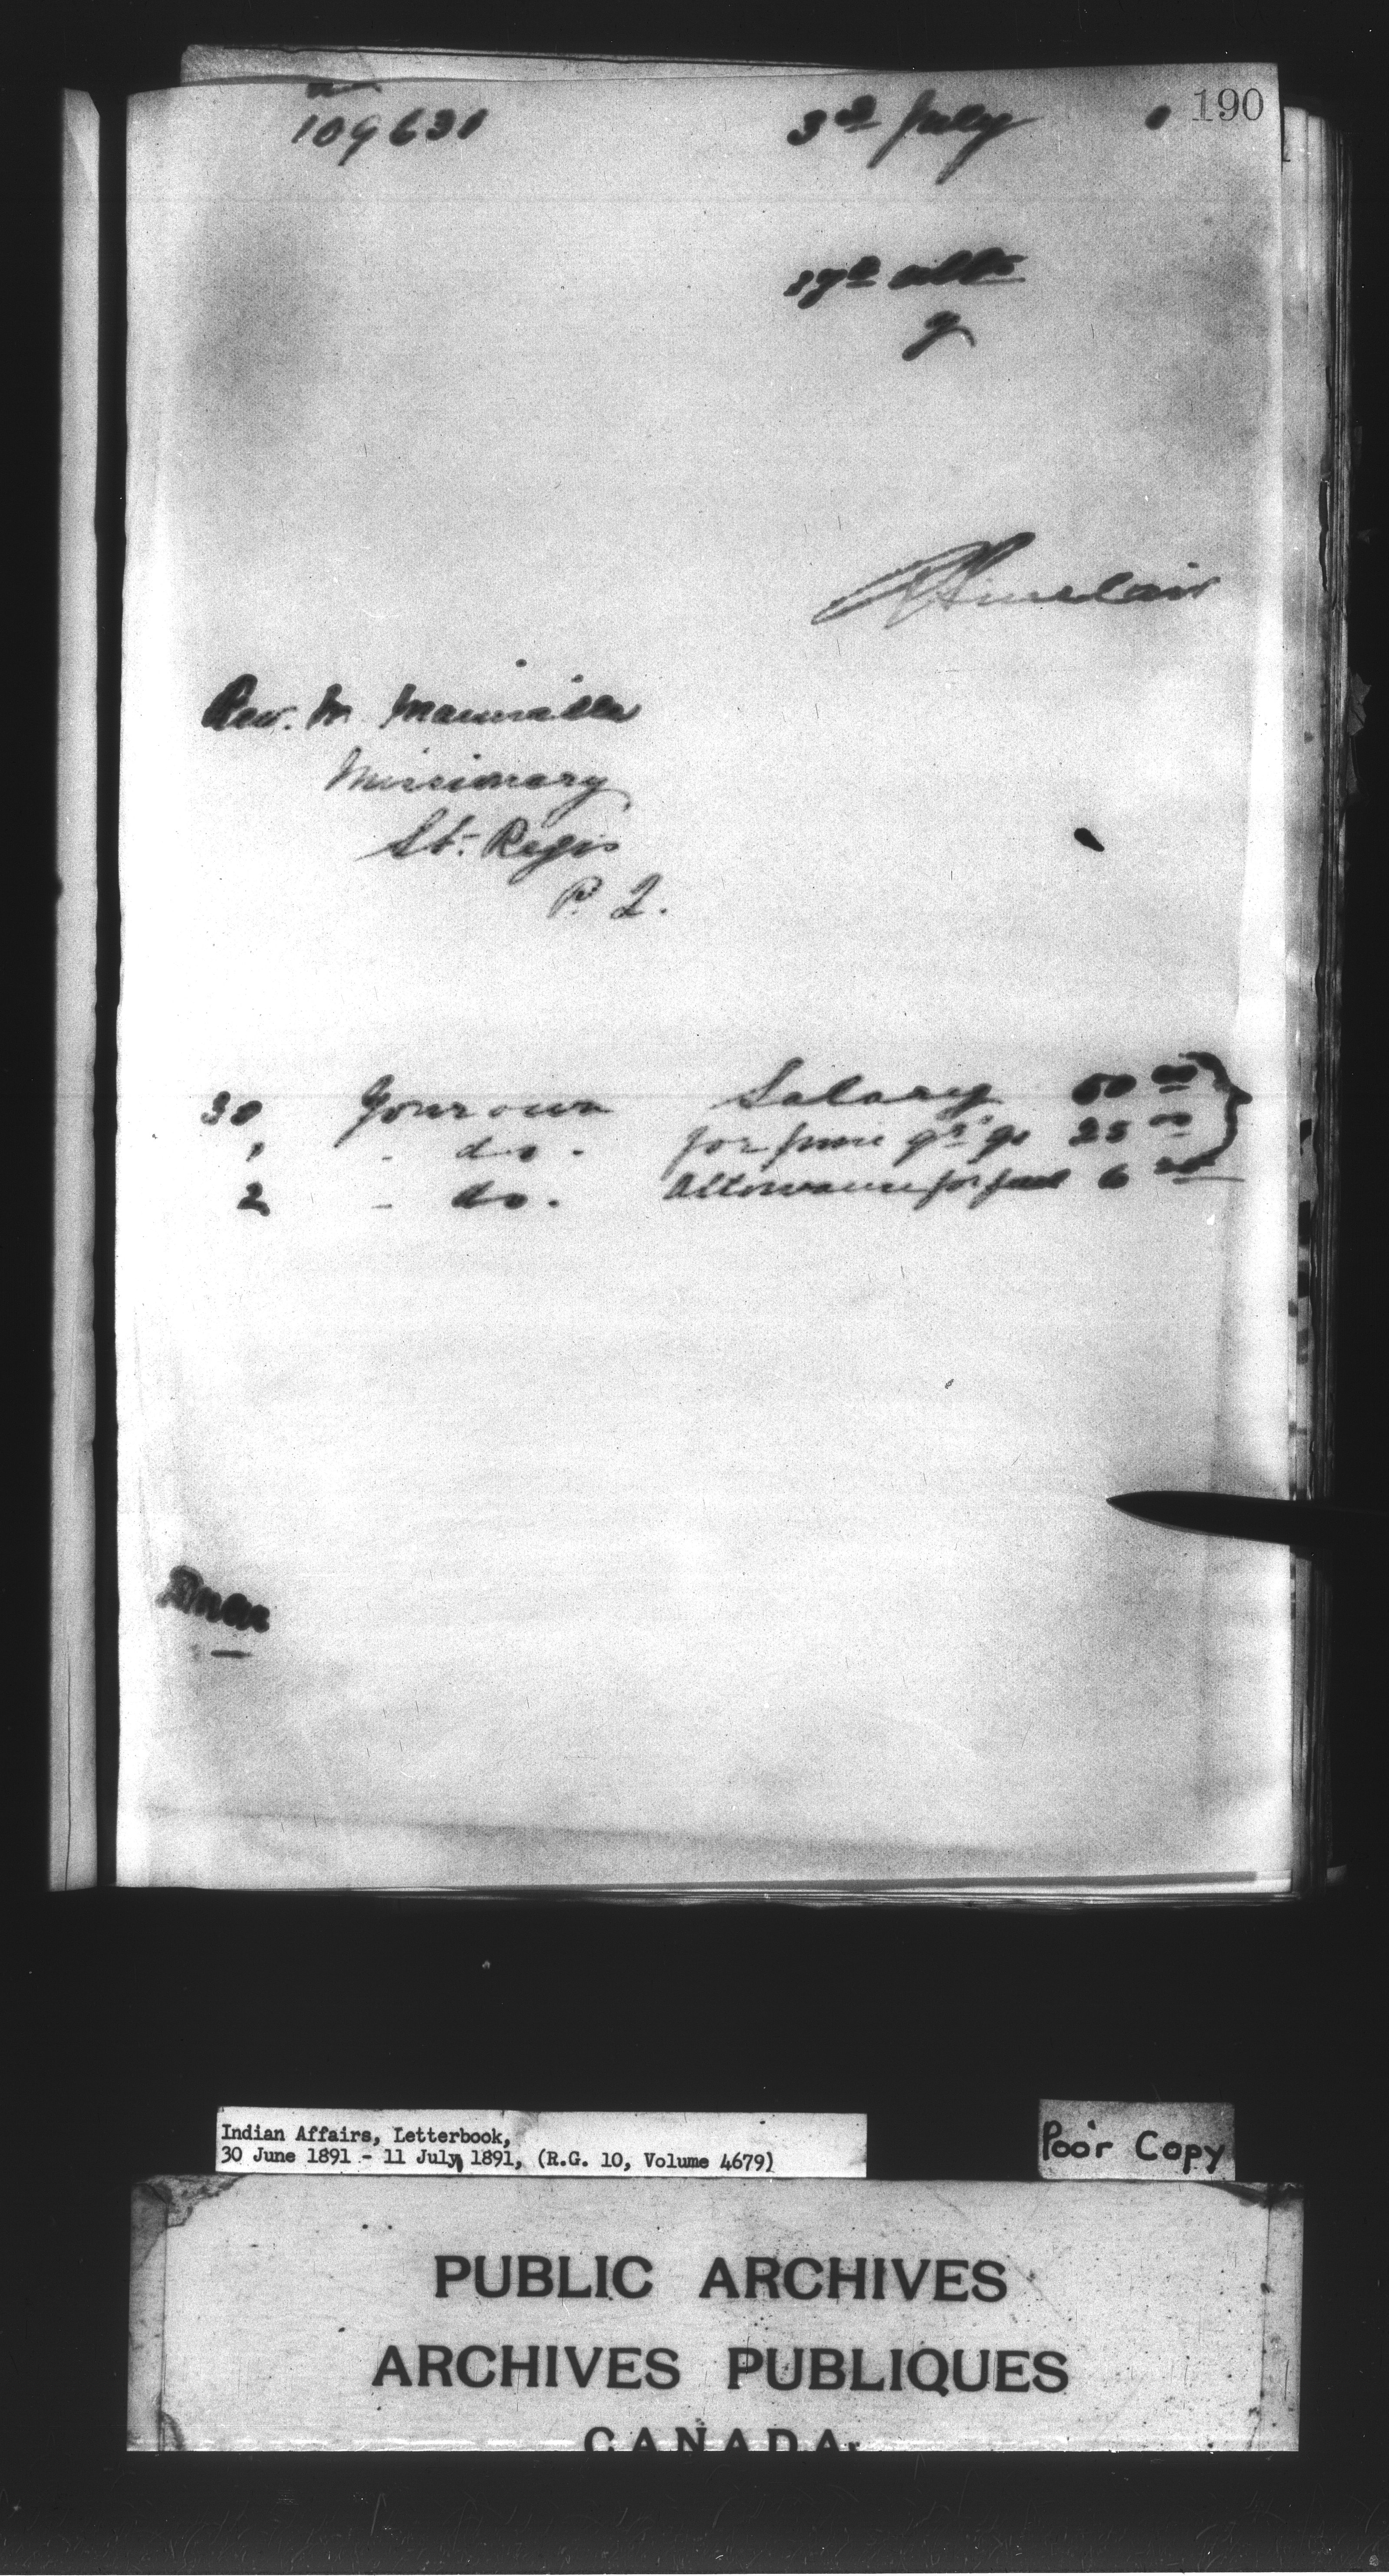 190
109631 3rd July 1
17th ulto
R Sinclair
Rev. M. Mainville
Missionary
St. Regis
P. Q.
30 Your own Salary 50 00
1 - do. for June qr 25 00
2 - do. Allowance for fuel 6
Indian Affairs, Letterbook,
30 June 1891 - 11 July 1891, (R.G. 10, Volume 4679)
Poor Copy
PUBLIC ARCHIVES
ARCHIVES PUBLIQUES
CANADA